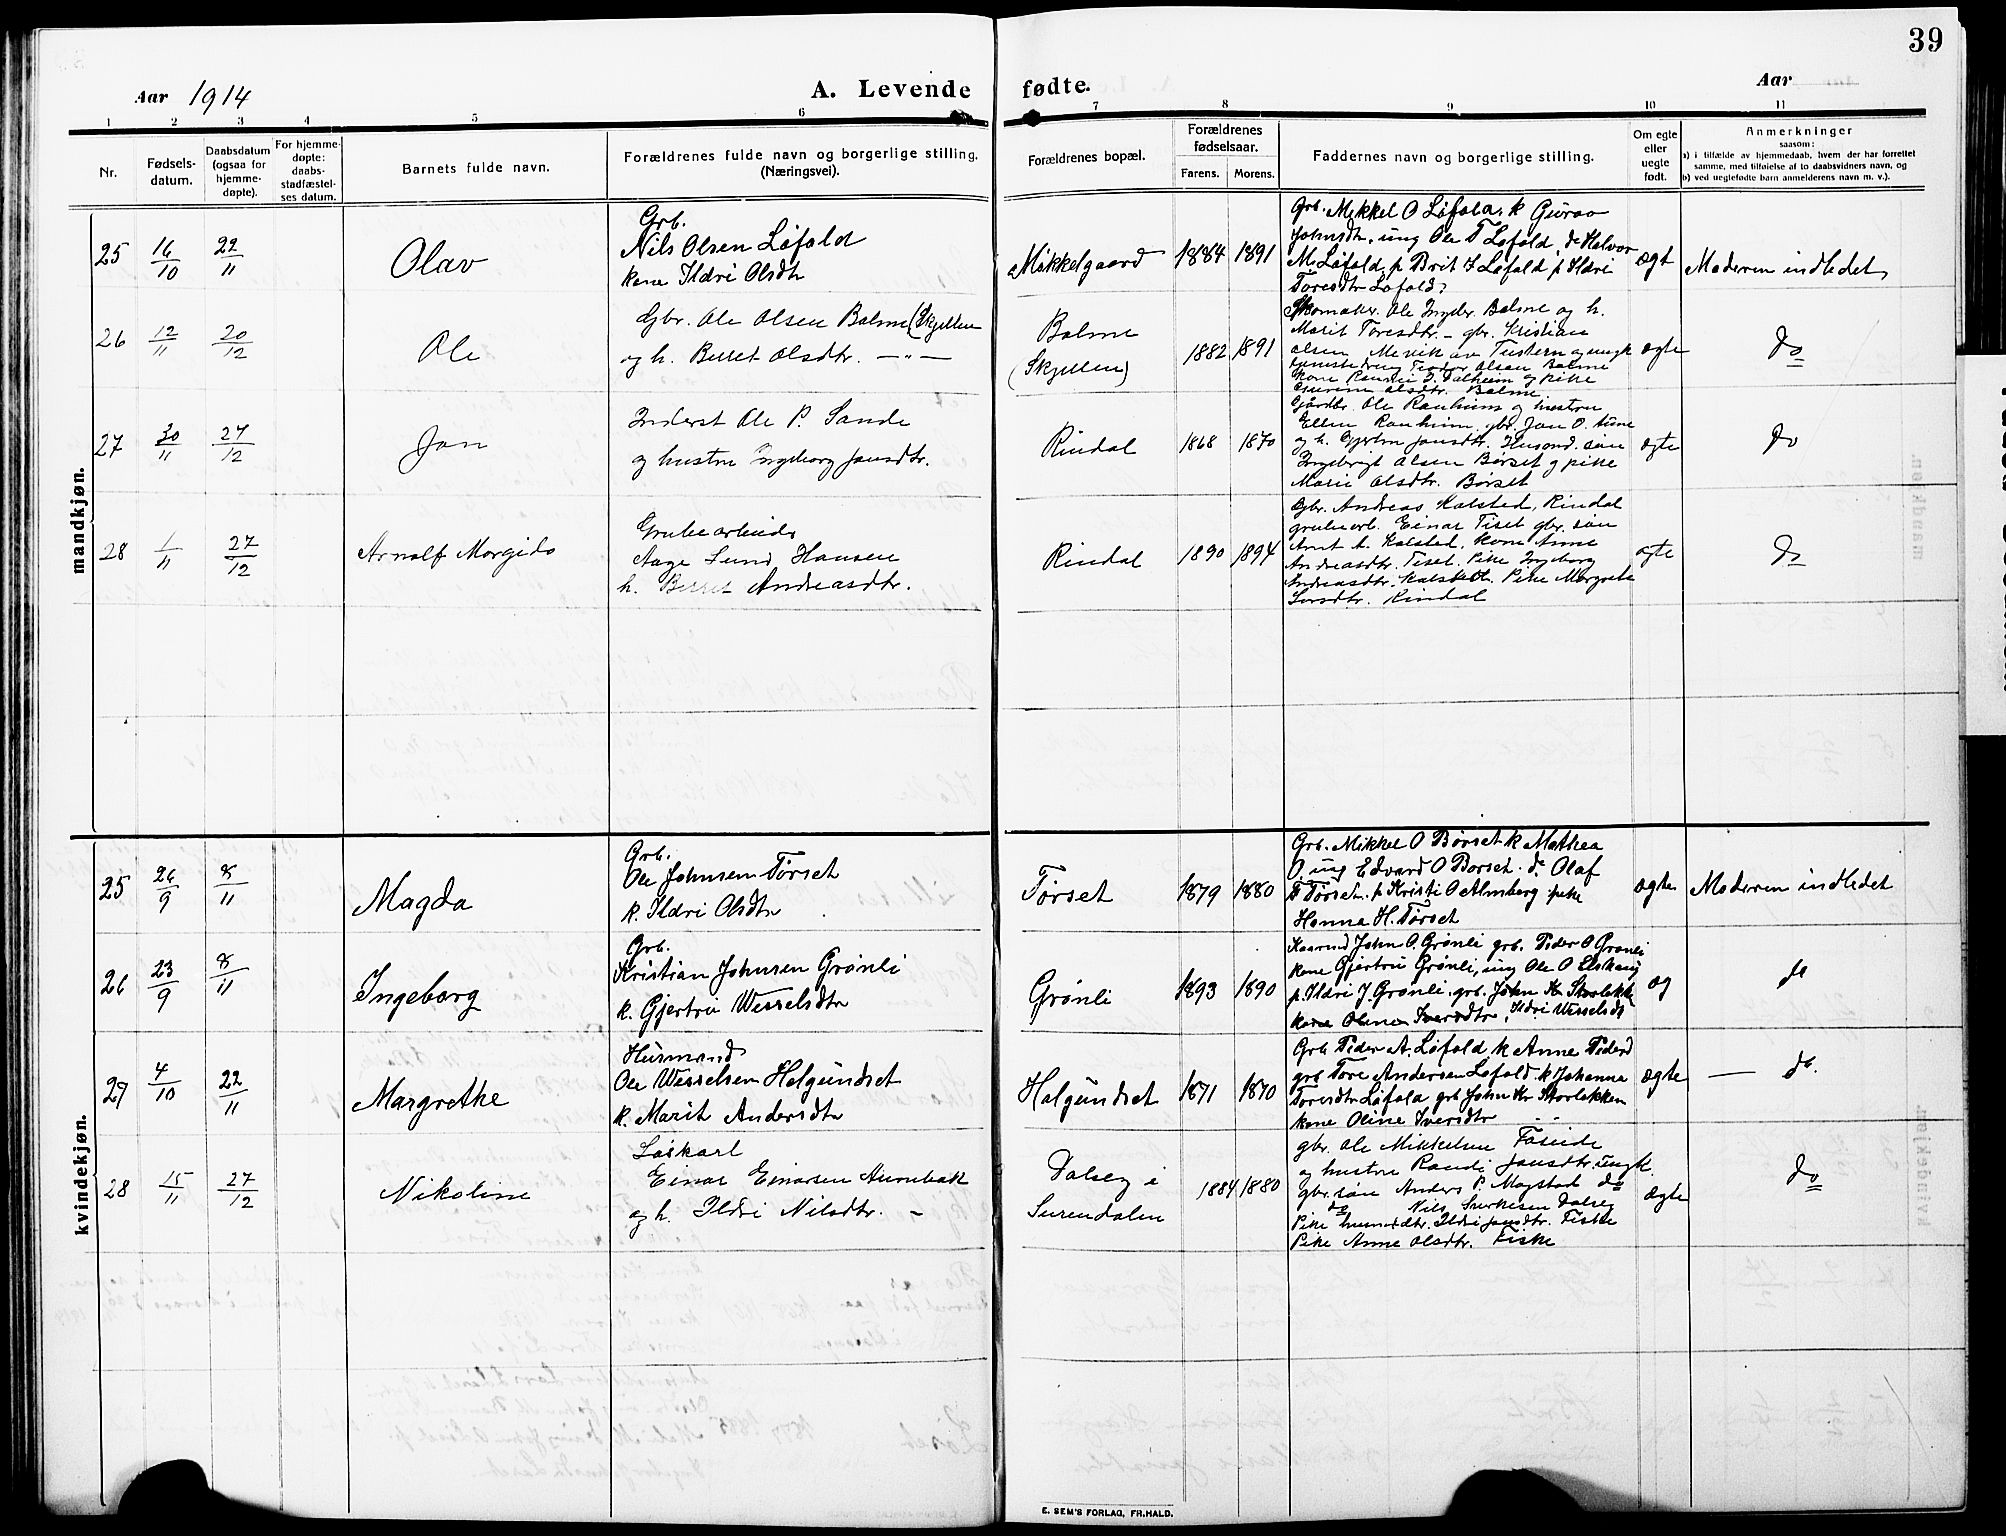 39
Aar 1914
A. Levende
fødte.
Aar
1 2 3 4 5 6
7 8 9 10 11
Nr.
Fødsels-
datum.
Daabsdatum
(ogsaa for
hjemme-
døpte).
For hjemme-
døpte:
daabs-
stadfæstel-
ses datum.
Barnets fulde navn.
Forældrenes fulde navn og borgerlige stilling.
(Næringsvei).
Forældrenes bopæl.
Forældrenes
fødselsaar.
Farens. Morens.
Faddernes navn og borgerlige stilling.
Om egte
eller
uegte
født.
Anmerkninger
saasom:
a) i tilfælde av hjemmedaab, hvem der har forrettet
samme, med tilføielse af to daabsvidners navn, og
b) ved uegtefødte barn anmelderens navn m. v.).
mandkjøn.
25 16/10 22/11 Olav
Grb.
Nils Olsen Løfald
kone Ildri Olsdtr
Mikkelgaard 1884 1891
Grb. Mikkel O Løfald, k Guroo
Johnsdtr, ung Ole T Løfald, do Halvor
M Løfald, p Brit I Løfald p Ildri
Toresdtr Løfald
ægt Moderen indledet
26 12/11 20/12 Ole
Gbr. Ole Olsen Bolme (Skjellen
og h. Berret Olsdtr. —"—
Bolme
(Skjellen)
1882 1891
Skomaker Ole Ingbr. Bolme og h.
Marit Toresdtr. - gbr. Kristian
Olsen Mevik av Tustern og ungk
Olsen Bolme
kone Dalheim og pike
Olsdtr. Bolme
ægte do
27 30/11 27/12 Jon
Inderst Ole P. Sande
og hustru Ingeborg Jonsdtr.
Rindal 1868 1870
Gårdbr. Ole Ranheim og hustru
Ellen Ranheim, gbr. Jon O.
og h. Gjertru Jonsdtr. Husmd. søn
Ingebrigt Olsen Børset og pike
Marie Olsdtr. Børset
ægte do
28 1/11 27/12 Arnolf Morgido
Grubearbeider
Aage Lund Hansen
h. Berret Andreasdtr.
Rindal 1890 1894
Gbr. Andreas Kalsted, Rindal
grubearb. Einar Tiset gbr. søn
Arnt A. Kalsted. Kone Anne
Andreasdtr. Tiset. Pike Ingeborg
Andreasdtr. Kalstedt. Pike Margrete
Larsdtr. Rindal
ægte do
kvindekjøn.
25 26/9 8/11 Magda
Grb.
Ole Johnsen Tørset
k. Ildri Olsdtr
Tørset 1879 1880
Grb. Mikkel O Børset k Mathea
O, ung Edvard O Børset. do Olaf
Tørset. p Kristi O Almberg pike
Hanna H. Tørset
ægte Moderen indledet
26 23/9 8/11 Ingeborg
Grb.
Kristian Johnsen Grønli
k. Gjertru Wesselsdtr
Grønli 1893 1890
Kaarmd John O. Grønli grb. Peder O Grønli
kone Gjertru Grønli, ung Ole O
p. Ildri J. Grønli, grb. John Kr Storløkken
kone Oline Iversdtr, Ildri Wesselsdt
æg do
27 4/10 22/11 Margrethe
Husmand
Ole Wesselsen Halgundset
k. Marit Andersdtr
Halgundset 1871 1870
Grb Peder A. Løfald k Anne Pedersd
grb Tore Andersen Løfald k Johanna
Toresdtr Løfald grb John Kr Storløkken
kone Oline Iversdtr
ægte — do.
28 15/11 27/12 Nikoline
Løskarl
Einar Einarsen Aurnbak
og h. Ildri Nilsdtr. -
Dalseg i
Surendalen
1884 1880
gbr. Ole Mikkelsen
og hustru Randi Jonsdtr. ungk.
gbr. søn Anders P. Mogstad do
do Nils Dalseg
Pike husmdtr. Ildri Jonsdtr. Fiske
Pike Anne Olsdtr. Fiske
ægte do
E. SEM'S FORLAG, FR.HALD.